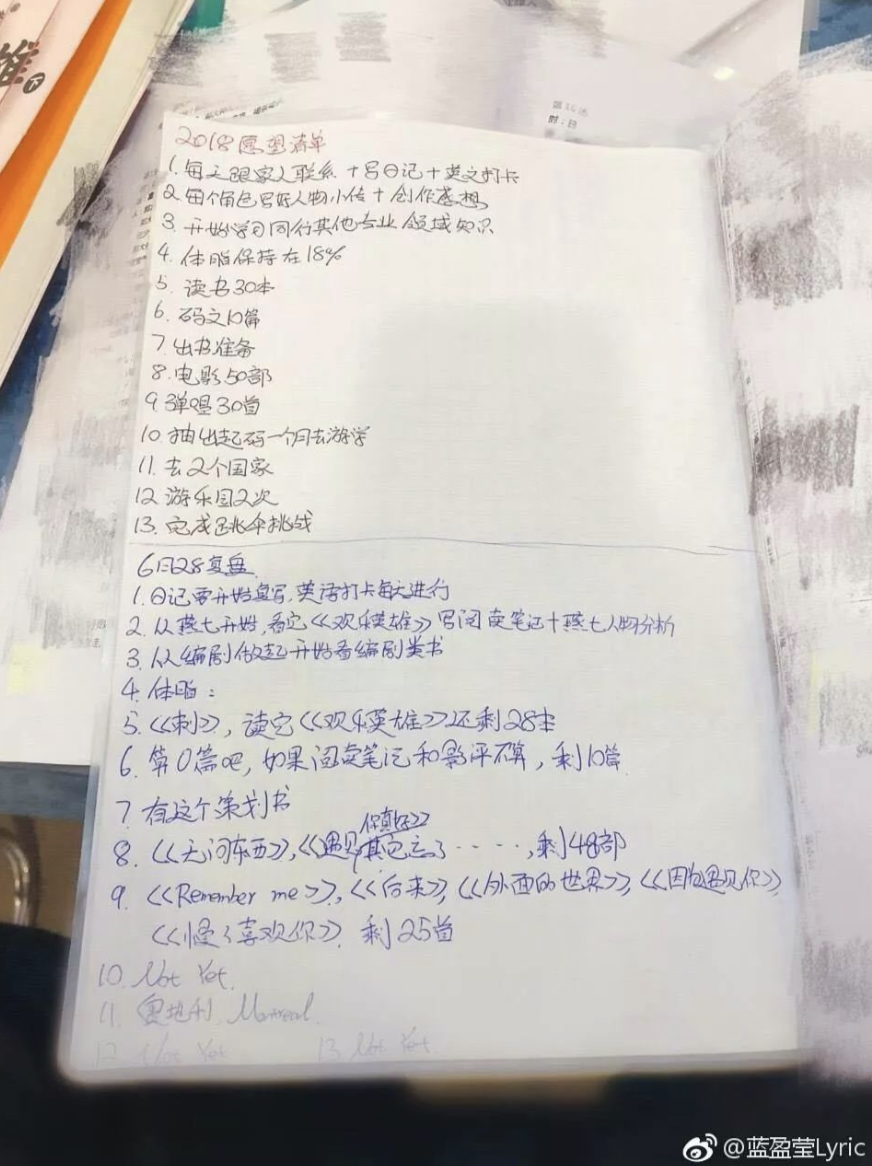 雄
下
时:日
2018愿望清单
1.每天跟家人联系+写日记+英文打卡
2.每个角色写好人物小传+创作感想
3.开始学习同行其他专业领域知识
4.体脂保持在18%
5.读书30本
6.码文10篇
7.出书准备
8.电影50部
9.弹唱30首
10.抽出起码一个月去游学
11.去2个国家
12.游乐园2次
13.完成跳伞挑战
6月28复盘
1.日记要开始真写,英语打卡每天进行
2.从燕七开始,看完《欢乐英雄》写阅读笔记+燕七人物分析
3.从编剧做起开始看编剧类书
4.体脂:
5.《刺》,读完《欢乐英雄》还剩28本
6.算0篇吧,如果阅读笔记和影评不算,剩10篇
7.有这个策划书
你真好》
8.《无问东西》,《遇见 其它忘了·····,剩48部
9.《Remember me》,《后来》,《外面的世界》,《因为遇见你》
《慢慢喜欢你》 剩25首
10. Not Yet.
11. 奥地利, Montreal.
12. Not Yet 13. Not Yet.
@蓝盈莹Lyric